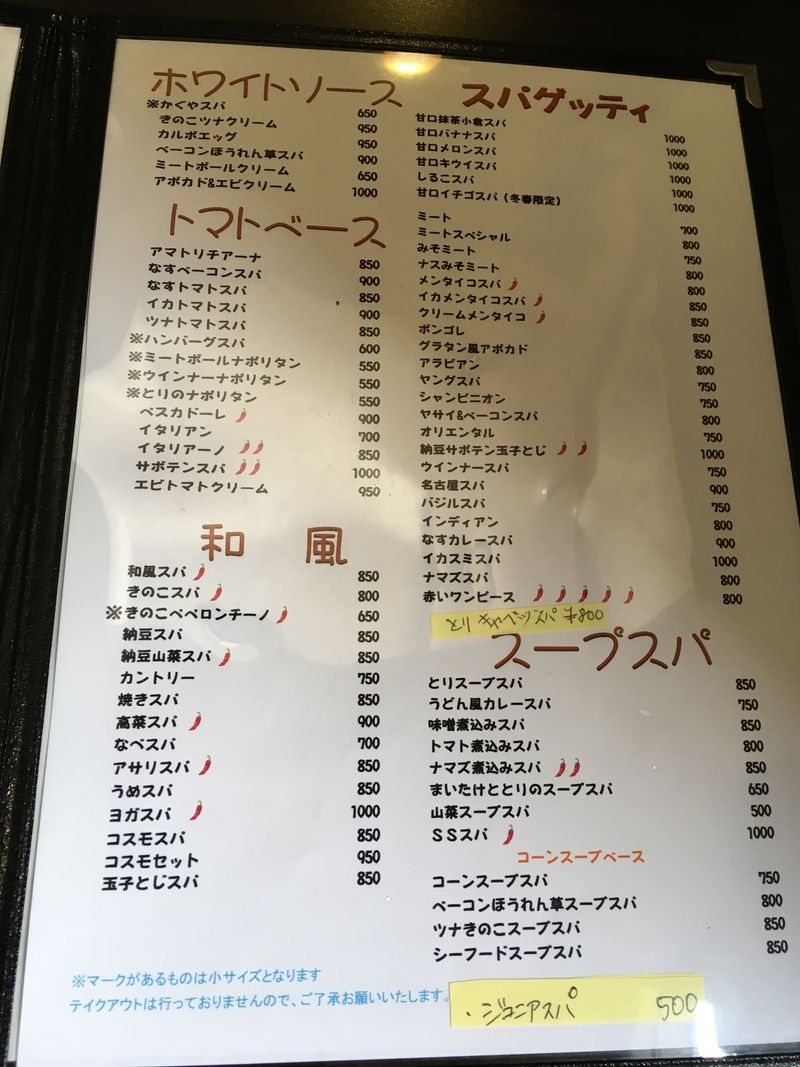 ホワイトソース
※かぐやスパ 650
きのこツナクリーム 950
カルボエッグ 950
ベーコンほうれん草スパ 900
ミートボールクリーム 650
アボカド&エビクリーム 1000
トマトベース
アマトリチアーナ 850
なすベーコンスパ 900
なすトマトスパ 850
イカトマトスパ 900
ツナトマトスパ 850
※ハンバーグスパ 600
※ミートボールナポリタン 550
※ウインナーナポリタン 550
※とりのナポリタン 550
ペスカドーレ 900
イタリアン 700
イタリアーノ 850
サボテンスパ 1000
エビトマトクリーム 950
和 風
和風スパ 850
きのこスパ 800
※きのこペペロンチーノ 650
納豆スパ 850
納豆山菜スパ 850
カントリー 750
焼きスパ 850
高菜スパ 900
なべスパ 700
アサリスパ 850
うめスパ 850
ヨガスパ 1000
コスモスパ 850
コスモセット 950
玉子とじスパ 850
※マークがあるものは小サイズとなります
テイクアウトは行っておりませんので、ご了承お願いいたします。
スパゲッティ
甘口抹茶小倉スパ 1000
甘口バナナスパ 1000
甘口メロンスパ 1000
甘口キウイスパ 1000
しるこスパ 1000
甘口イチゴスパ（冬春限定） 1000
ミート 700
ミートスペシャル 800
みそミート 750
ナスみそミート 800
メンタイコスパ 800
イカメンタイコスパ 850
クリームメンタイコ 850
ボンゴレ 850
グラタン風アボカド 850
アラビアン 800
ヤングスパ 750
シャンピニオン 750
ヤサイ&ベーコンスパ 800
オリエンタル 750
納豆サボテン玉子とじ 1000
ウインナースパ 750
名古屋スパ 900
バジルスパ 750
インディアン 800
なすカレースパ 900
イカスミスパ 1000
ナマズスパ 800
赤いワンピース 800
とり キャベツスパ ¥800
スープスパ
とりスープスパ 850
うどん風カレースパ 750
味噌煮込みスパ 850
トマト煮込みスパ 800
ナマズ煮込みスパ 850
まいたけととりのスープスパ 650
山菜スープスパ 500
SSスパ 1000
コーンスープベース
コーンスープスパ 750
ベーコンほうれん草スープスパ 800
ツナきのこスープスパ 850
シーフードスープスパ 850
・ジュニアスパ 500